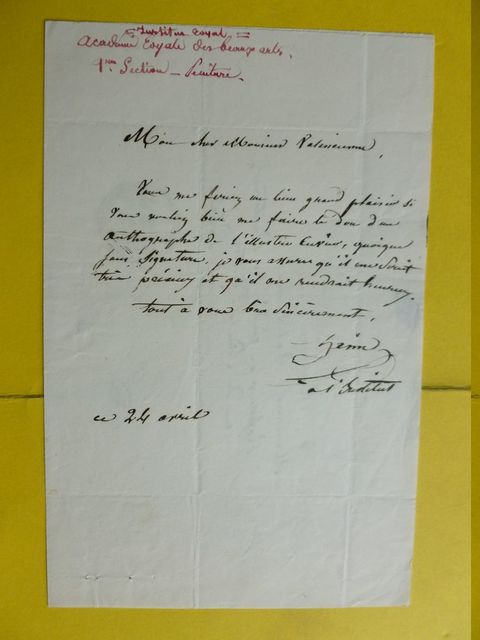 = Institut royal =
Academie Royale des beaux arts.
1ere Section - Peinture.
Mon cher Monsieur Valencienne,
Vous me feriez un bien grand plaisir si
vous vouliez bien me faire le don d'un
authographe de l'illustre Cuvier, quoique
sans signature. je vous assure qu'il me serait
très précieux et qu'il me rendrait heureux.
tout à vous bien sincèrement,
à l'Institut
ce 24 avril